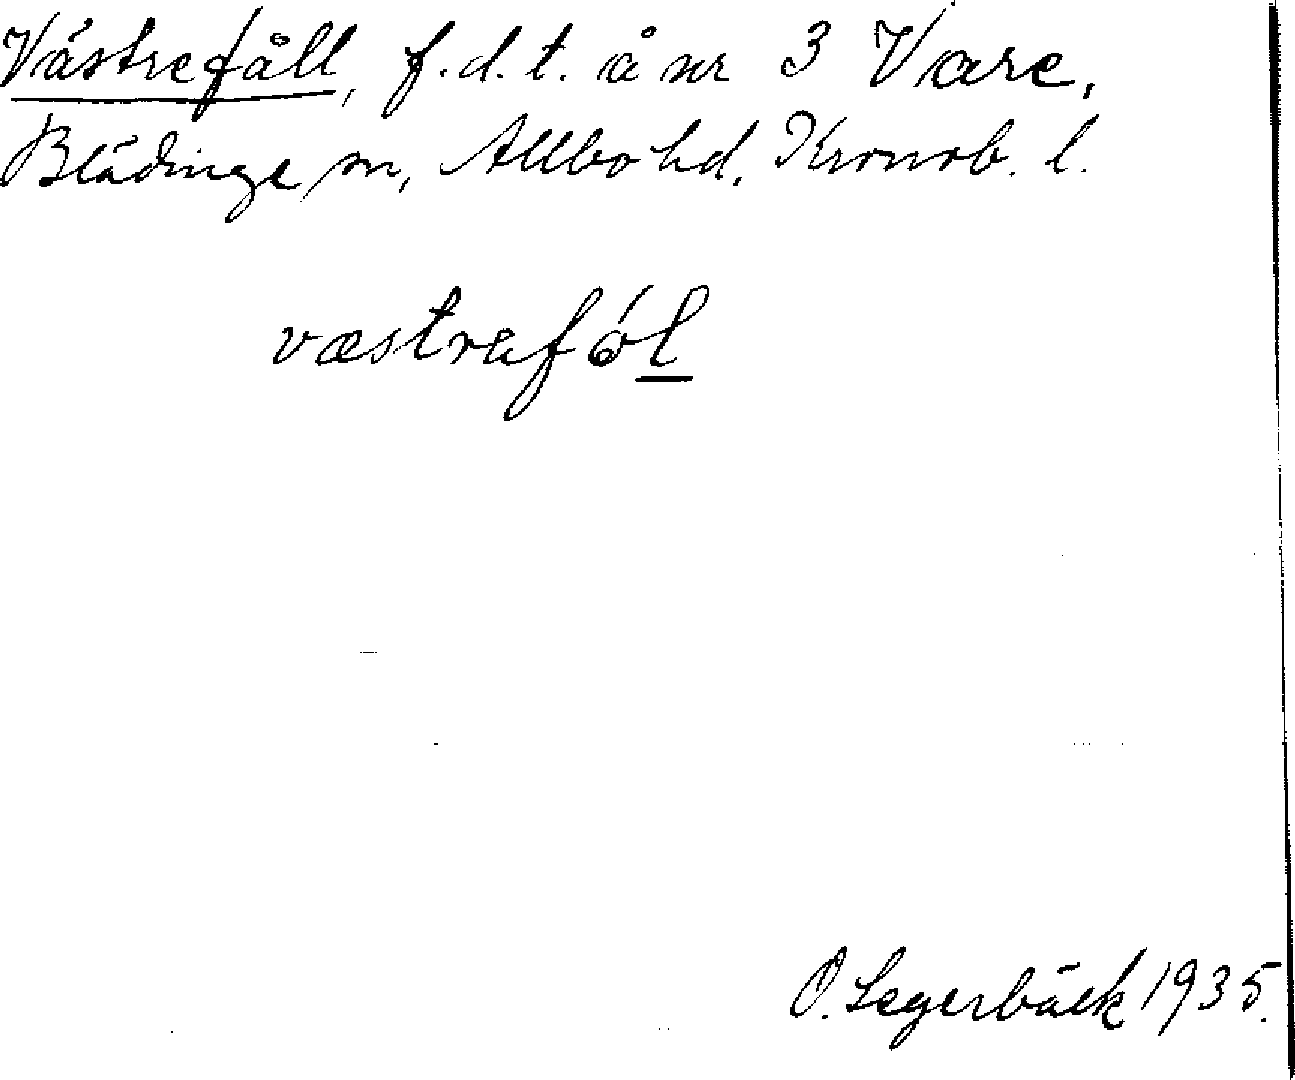 Västrefåll, f.d.t. å nr 3 Vare,
Blädinge sn, Allbo hd. Kronob. l.
væstrafól
O. Segerbäck 1935.